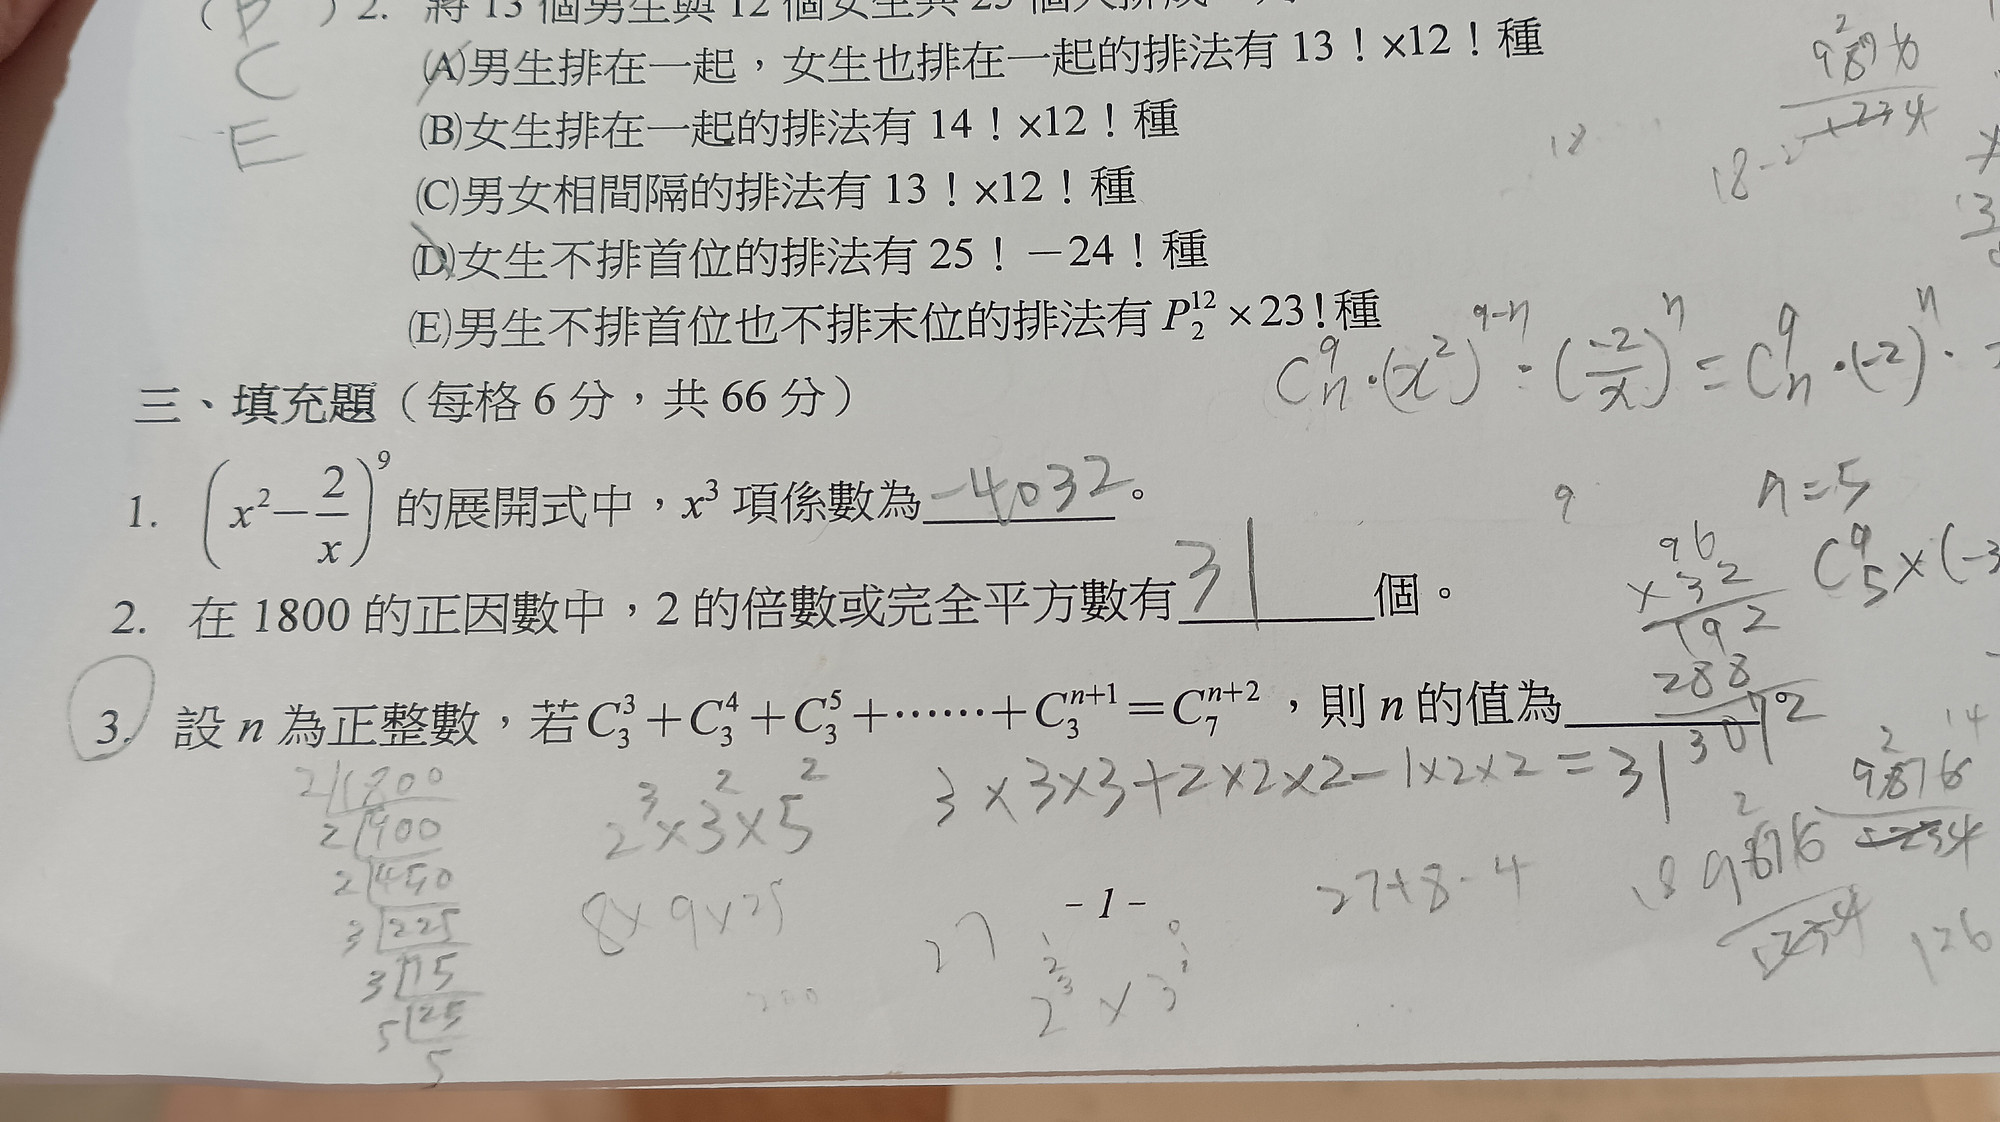 (B) 2. 將 13 個男生與 12 個女生共 25 個人排成一列
C (A)男生排在一起，女生也排在一起的排法有 13！×12！種
E (B)女生排在一起的排法有 14！×12！種
(C)男女相間隔的排法有 13！×12！種
(D)女生不排首位的排法有 25！－24！種
(E)男生不排首位也不排末位的排法有 P₂¹²×23!種
三、填充題（每格 6 分，共 66 分）
C₉ₙ·(x²)⁹⁻ⁿ·(-2/x)ⁿ = C⁹ₙ·(-2)ⁿ·
1. (x²－2/x)⁹ 的展開式中，x³ 項係數為 -4032 。
n=5
C⁹₅×(-
2. 在 1800 的正因數中，2 的倍數或完全平方數有 31 個。
96
×32
192
288
3072
3. 設 n 為正整數，若 C₃³＋C₃⁴＋C₃⁵＋……＋C₃ⁿ⁺¹＝C₇ⁿ⁺²，則 n 的值為 。
3×3×3+2×2×2-1×2×2=31
2|1800
2|900
2|450
3|225
3|75
5|25
5
2³×3²×5²
8×9×25
27+8-4
27
126
- 1 -